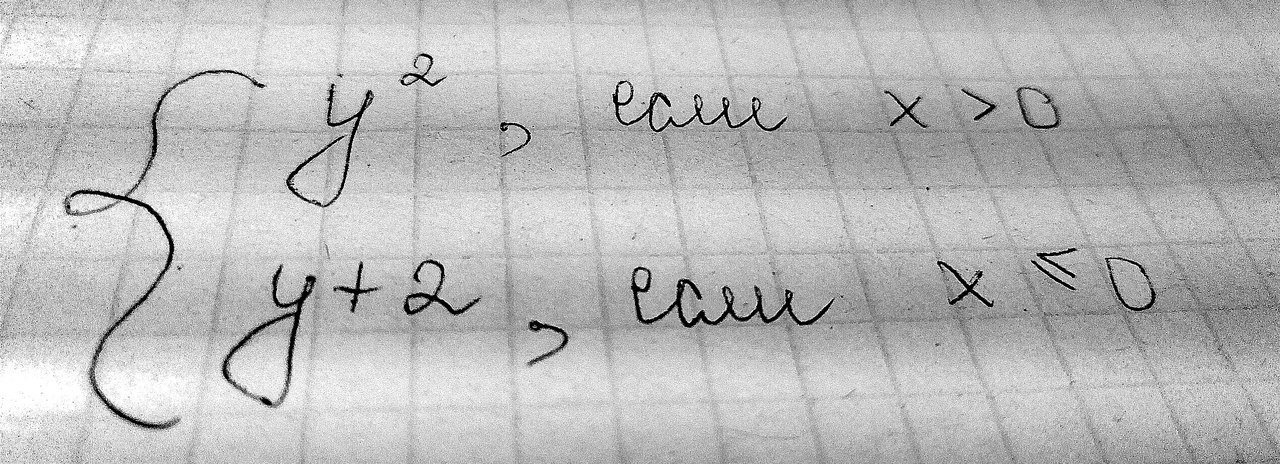 y², если x > 0
y + 2, если x ≤ 0